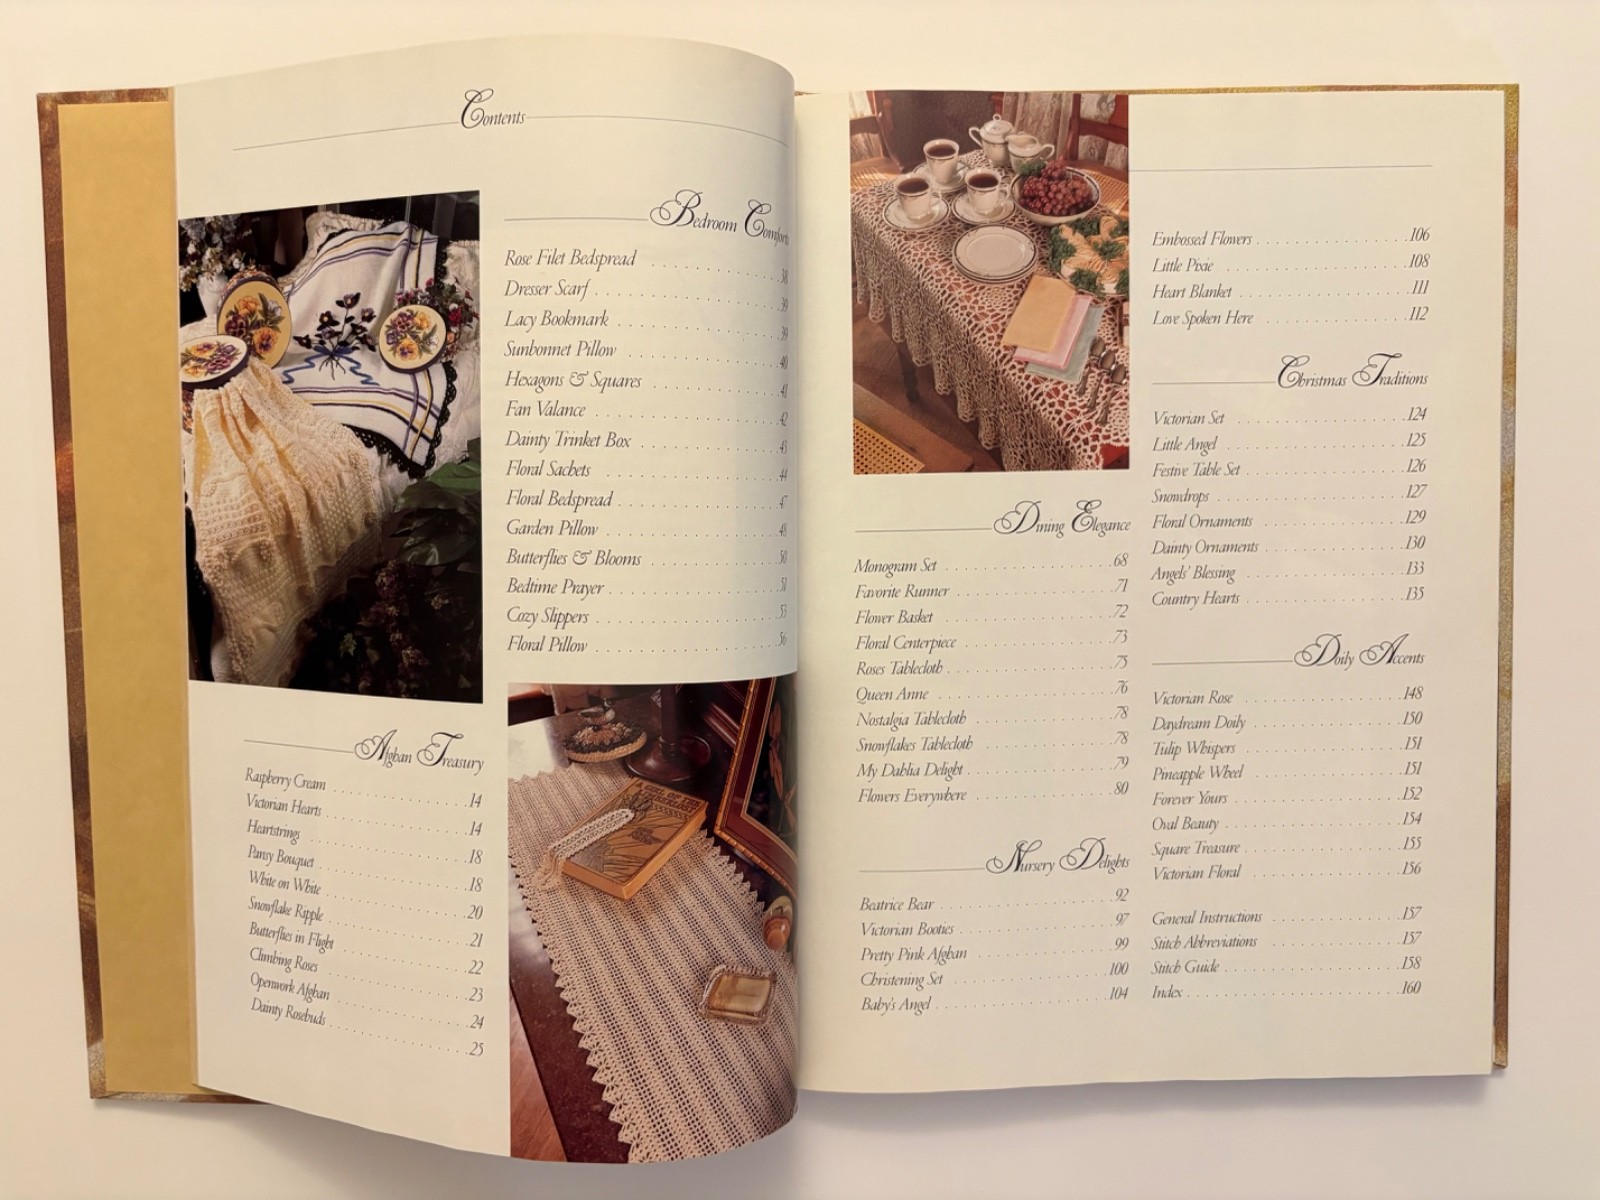 Contents
Afghan Treasury
Raspberry Cream . . . . . . . . . . . . . . . .14
Victorian Hearts . . . . . . . . . . . . . . . .14
Heartstrings . . . . . . . . . . . . . . . .18
Pansy Bouquet . . . . . . . . . . . . . . . .18
White on White . . . . . . . . . . . . . . . .20
Snowflake Ripple . . . . . . . . . . . . . . . .21
Butterflies in Flight . . . . . . . . . . . . . . . .22
Climbing Roses . . . . . . . . . . . . . . . .23
Openwork Afghan . . . . . . . . . . . . . . . .24
Dainty Rosebuds . . . . . . . . . . . . . . . .25
Bedroom Comforts
Rose Filet Bedspread . . . . . . . . . . . . . .38
Dresser Scarf . . . . . . . . . . . . . .39
Lacy Bookmark . . . . . . . . . . . . . .39
Sunbonnet Pillow . . . . . . . . . . . . . .40
Hexagons & Squares . . . . . . . . . . . . . .41
Fan Valance . . . . . . . . . . . . . .42
Dainty Trinket Box . . . . . . . . . . . . . .43
Floral Sachets . . . . . . . . . . . . . .44
Floral Bedspread . . . . . . . . . . . . . .47
Garden Pillow . . . . . . . . . . . . . .48
Butterflies & Blooms . . . . . . . . . . . . . .50
Bedtime Prayer . . . . . . . . . . . . . .51
Cozy Slippers . . . . . . . . . . . . . .53
Floral Pillow . . . . . . . . . . . . . .56
Dining Elegance
Monogram Set . . . . . . . . . . . . . . . .68
Favorite Runner . . . . . . . . . . . . . . . .71
Flower Basket . . . . . . . . . . . . . . . .72
Floral Centerpiece . . . . . . . . . . . . . . . .73
Roses Tablecloth . . . . . . . . . . . . . . . .75
Queen Anne . . . . . . . . . . . . . . . .76
Nostalgia Tablecloth . . . . . . . . . . . . . . . .78
Snowflakes Tablecloth . . . . . . . . . . . . . . . .78
My Dahlia Delight . . . . . . . . . . . . . . . .79
Flowers Everywhere . . . . . . . . . . . . . . . .80
Nursery Delights
Beatrice Bear . . . . . . . . . . . . . . . .92
Victorian Booties . . . . . . . . . . . . . . . .97
Pretty Pink Afghan . . . . . . . . . . . . . . . .99
Christening Set . . . . . . . . . . . . . . . .100
Baby's Angel . . . . . . . . . . . . . . . .104
Embossed Flowers . . . . . . . . . . . . . . . .106
Little Pixie . . . . . . . . . . . . . . . .108
Heart Blanket . . . . . . . . . . . . . . . .111
Love Spoken Here . . . . . . . . . . . . . . . .112
Christmas Traditions
Victorian Set . . . . . . . . . . . . . . . .124
Little Angel . . . . . . . . . . . . . . . .125
Festive Table Set . . . . . . . . . . . . . . . .126
Snowdrops . . . . . . . . . . . . . . . .127
Floral Ornaments . . . . . . . . . . . . . . . .129
Dainty Ornaments . . . . . . . . . . . . . . . .130
Angels' Blessing . . . . . . . . . . . . . . . .133
Country Hearts . . . . . . . . . . . . . . . .135
Doily Accents
Victorian Rose . . . . . . . . . . . . . . . .148
Daydream Doily . . . . . . . . . . . . . . . .150
Tulip Whispers . . . . . . . . . . . . . . . .151
Pineapple Wheel . . . . . . . . . . . . . . . .151
Forever Yours . . . . . . . . . . . . . . . .152
Oval Beauty . . . . . . . . . . . . . . . .154
Square Treasure . . . . . . . . . . . . . . . .155
Victorian Floral . . . . . . . . . . . . . . . .156
General Instructions . . . . . . . . . . . . . . . .157
Stitch Abbreviations . . . . . . . . . . . . . . . .157
Stitch Guide . . . . . . . . . . . . . . . .158
Index . . . . . . . . . . . . . . . .160